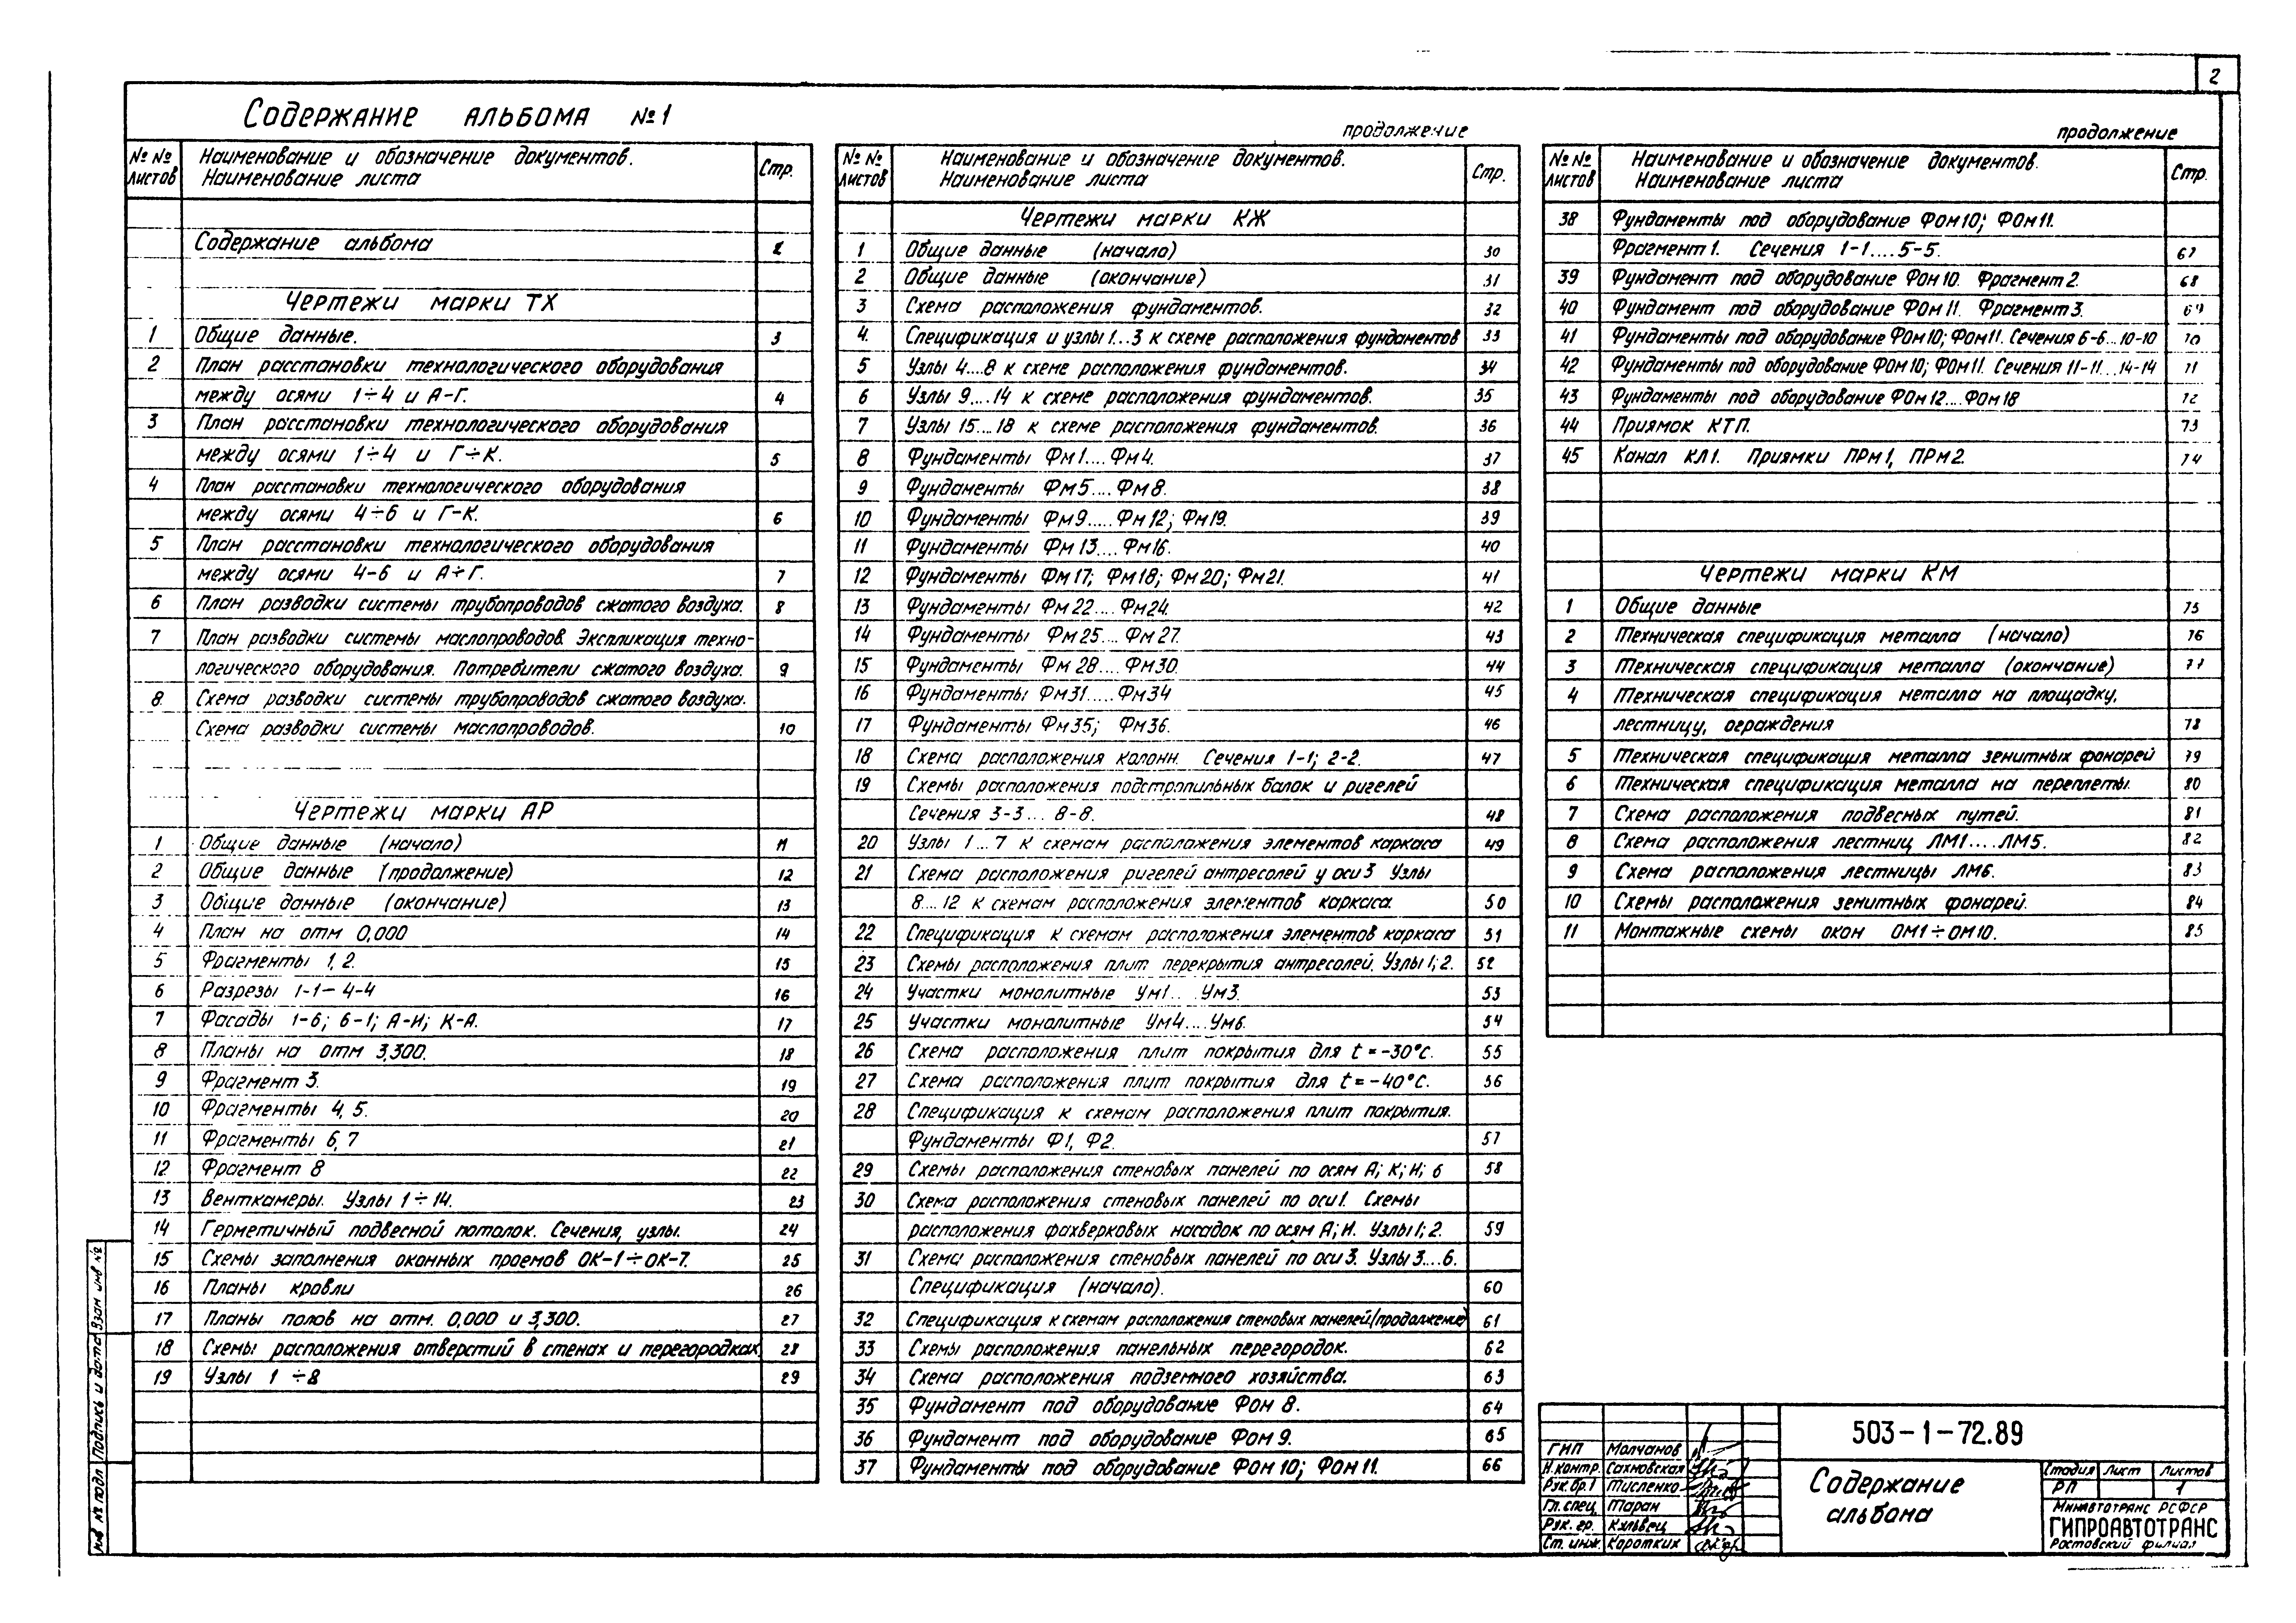 2
Содержание альбома №1
№№ листов Наименование и обозначение документов. Наименование листа Стр.
Содержание альбома 2
Чертежи марки ТХ
1 Общие данные. 3
2 План расстановки технологического оборудования
между осями 1÷4 и А-Г. 4
3 План расстановки технологического оборудования
между осями 1÷4 и Г÷К. 5
4 План расстановки технологического оборудования
между осями 4÷6 и Г-К. 6
5 План расстановки технологического оборудования
между осями 4-6 и А÷Г. 7
6 План разводки системы трубопроводов сжатого воздуха. 8
7 План разводки системы маслопроводов. Экспликация техно-
логического оборудования. Потребители сжатого воздуха. 9
8 Схема разводки системы трубопроводов сжатого воздуха.
Схема разводки системы маслопроводов. 10
Чертежи марки АР
1 Общие данные (начало) 11
2 Общие данные (продолжение) 12
3 Общие данные (окончание) 13
4 План на отм 0,000 14
5 Фрагменты 1, 2. 15
6 Разрезы 1-1 — 4-4 16
7 Фасады 1-6; 6-1; А-И; К-А. 17
8 Планы на отм 3,300. 18
9 Фрагмент 3. 19
10 Фрагменты 4, 5. 20
11 Фрагменты 6, 7 21
12 Фрагмент 8 22
13 Венткамеры. Узлы 1÷14. 23
14 Герметичный подвесной потолок. Сечения, узлы. 24
15 Схемы заполнения оконных проемов ОК-1÷ОК-7. 25
16 Планы кровли 26
17 Планы полов на отм. 0,000 и 3,300. 27
18 Схемы расположения отверстий в стенах и перегородках. 28
19 Узлы 1÷8 29
продолжение
№№ листов Наименование и обозначение документов. Наименование листа Стр.
Чертежи марки КЖ
1 Общие данные (начало) 30
2 Общие данные (окончание) 31
3 Схема расположения фундаментов. 32
4. Спецификация и узлы 1...3 к схеме расположения фундаментов 33
5 Узлы 4....8 к схеме расположения фундаментов. 34
6 Узлы 9....14 к схеме расположения фундаментов. 35
7 Узлы 15....18 к схеме расположения фундаментов. 36
8 Фундаменты Фм1....Фм4. 37
9 Фундаменты Фм5....Фм8. 38
10 Фундаменты Фм9.....Фм12; Фм19. 39
11 Фундаменты Фм13....Фм16. 40
12 Фундаменты Фм17; Фм18; Фм20; Фм21. 41
13 Фундаменты Фм22....Фм24. 42
14 Фундаменты Фм25....Фм27. 43
15 Фундаменты Фм28....Фм30. 44
16 Фундаменты Фм31.....Фм34 45
17 Фундаменты Фм35; Фм36. 46
18 Схема расположения колонн. Сечения 1-1; 2-2. 47
19 Схемы расположения подстропильных балок и ригелей
Сечения 3-3... 8-8. 48
20 Узлы 1...7 к схемам расположения элементов каркаса 49
21 Схема расположения ригелей антресолей у оси 3 Узлы
8...12 к схемам расположения элементов каркаса 50
22 Спецификация к схемам расположения элементов каркаса 51
23 Схемы расположения плит перекрытия антресолей. Узлы 1; 2. 52
24 Участки монолитные Ум1... Ум3. 53
25 Участки монолитные Ум4....Ум6. 54
26 Схема расположения плит покрытия для t = -30°С. 55
27 Схема расположения плит покрытия для t = -40°С. 56
28 Спецификация к схемам расположения плит покрытия.
Фундаменты Ф1, Ф2. 57
29 Схемы расположения стеновых панелей по осям А; К; И; 6 58
30 Схема расположения стеновых панелей по оси 1. Схемы
расположения фахверковых насадок по осям А; И. Узлы 1; 2. 59
31 Схема расположения стеновых панелей по оси 3. Узлы 3....6.
Спецификация (начало). 60
32 Спецификация к схемам расположения стеновых панелей (продолжение) 61
33 Схемы расположения панельных перегородок. 62
34 Схема расположения подземного хозяйства. 63
35 Фундамент под оборудование Фом 8. 64
36 Фундамент под оборудование Фом 9. 65
37 Фундаменты под оборудование Фом 10; Фом 11. 66
продолжение
№№ листов Наименование и обозначение документов. Наименование листа Стр.
38 Фундаменты под оборудование Фом10; Фом11.
Фрагмент 1. Сечения 1-1....5-5. 67
39 Фундамент под оборудование Фом 10. Фрагмент 2. 68
40 Фундамент под оборудование Фом 11. Фрагмент 3. 69
41 Фундаменты под оборудование Фом 10; Фом 11. Сечения 6-6...10-10 70
42 Фундаменты под оборудование Фом 10; Фом 11. Сечения 11-11...14-14 71
43 Фундаменты под оборудование Фом 12....Фом 18 72
44 Приямок КТП. 73
45 Канал КЛ1. Приямки ПРм1, ПРм2. 74
Чертежи марки КМ
1 Общие данные 75
2 Техническая спецификация металла (начало) 76
3 Техническая спецификация металла (окончание) 77
4 Техническая спецификация металла на площадку,
лестницу, ограждения 78
5 Техническая спецификация металла зенитных фонарей 79
6 Техническая спецификация металла на переплеты. 80
7 Схема расположения подвесных путей. 81
8 Схема расположения лестниц ЛМ1....ЛМ5. 82
9 Схема расположения лестницы ЛМ6. 83
10 Схемы расположения зенитных фонарей. 84
11 Монтажные схемы окон ОМ1÷ОМ10. 85
ГИП Молчанов
Н.контр. Сахновская
Рук.бр.1 Тисленко
Гл.спец. Таран
Рук. гр.
Ст. инж. Коротких
503-1-72.89
Содержание альбома
Стадия Лист Листов
РП 1
Минавтотранс РСФСР
ГИПРОАВТОТРАНС
Ростовский филиал
Взам инв №
Подпись и дата
Инв № подл